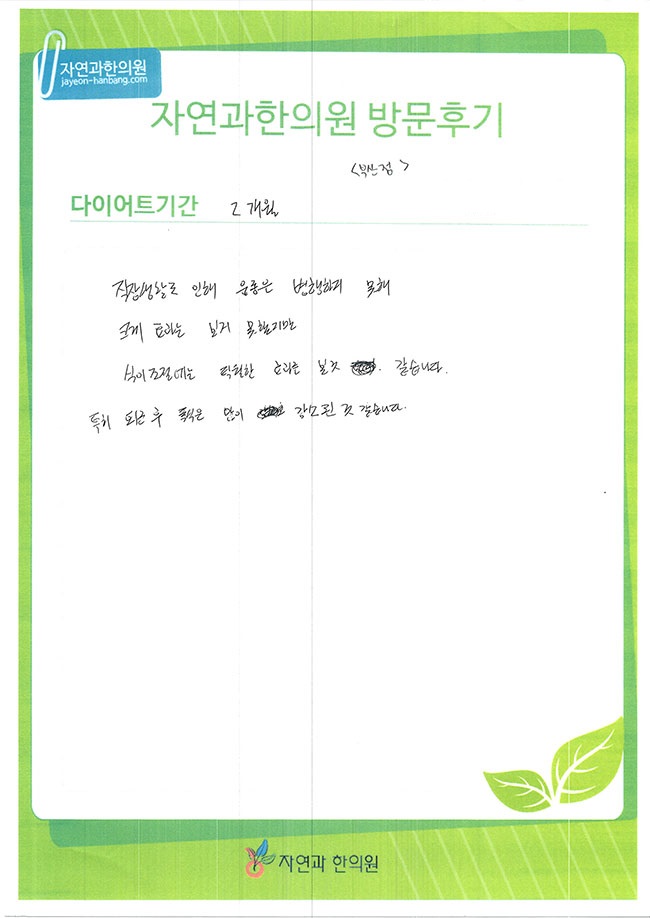 자연과한의원
jayeon-hanbang.com
자연과한의원 방문후기
<부산점>
다이어트기간 2개월
직장생활로 인해 운동은 병행하지 못해
크게 효과는 보지 못했지만
식이조절에는 탁월한 효과를 본것 같습니다.
특히 퇴근 후 폭식은 많이 감소된 것 같습니다.
자연과 한의원